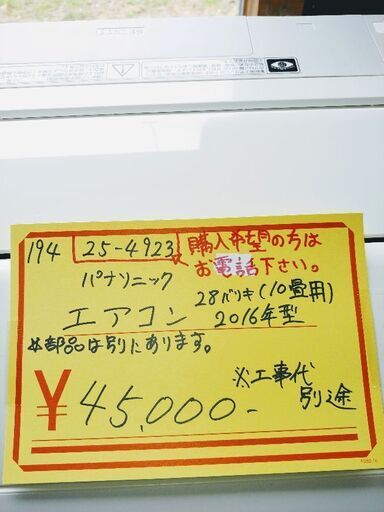 194 25-4923 購入希望の方は
お電話下さい。
パナソニック
エアコン 28バリキ(10畳用)
2016年型
※部品は別にあります。
¥45,000-
※工事代
別途